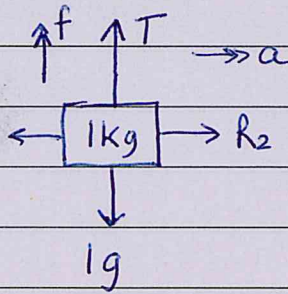 f T
a
1kg R₂
1g